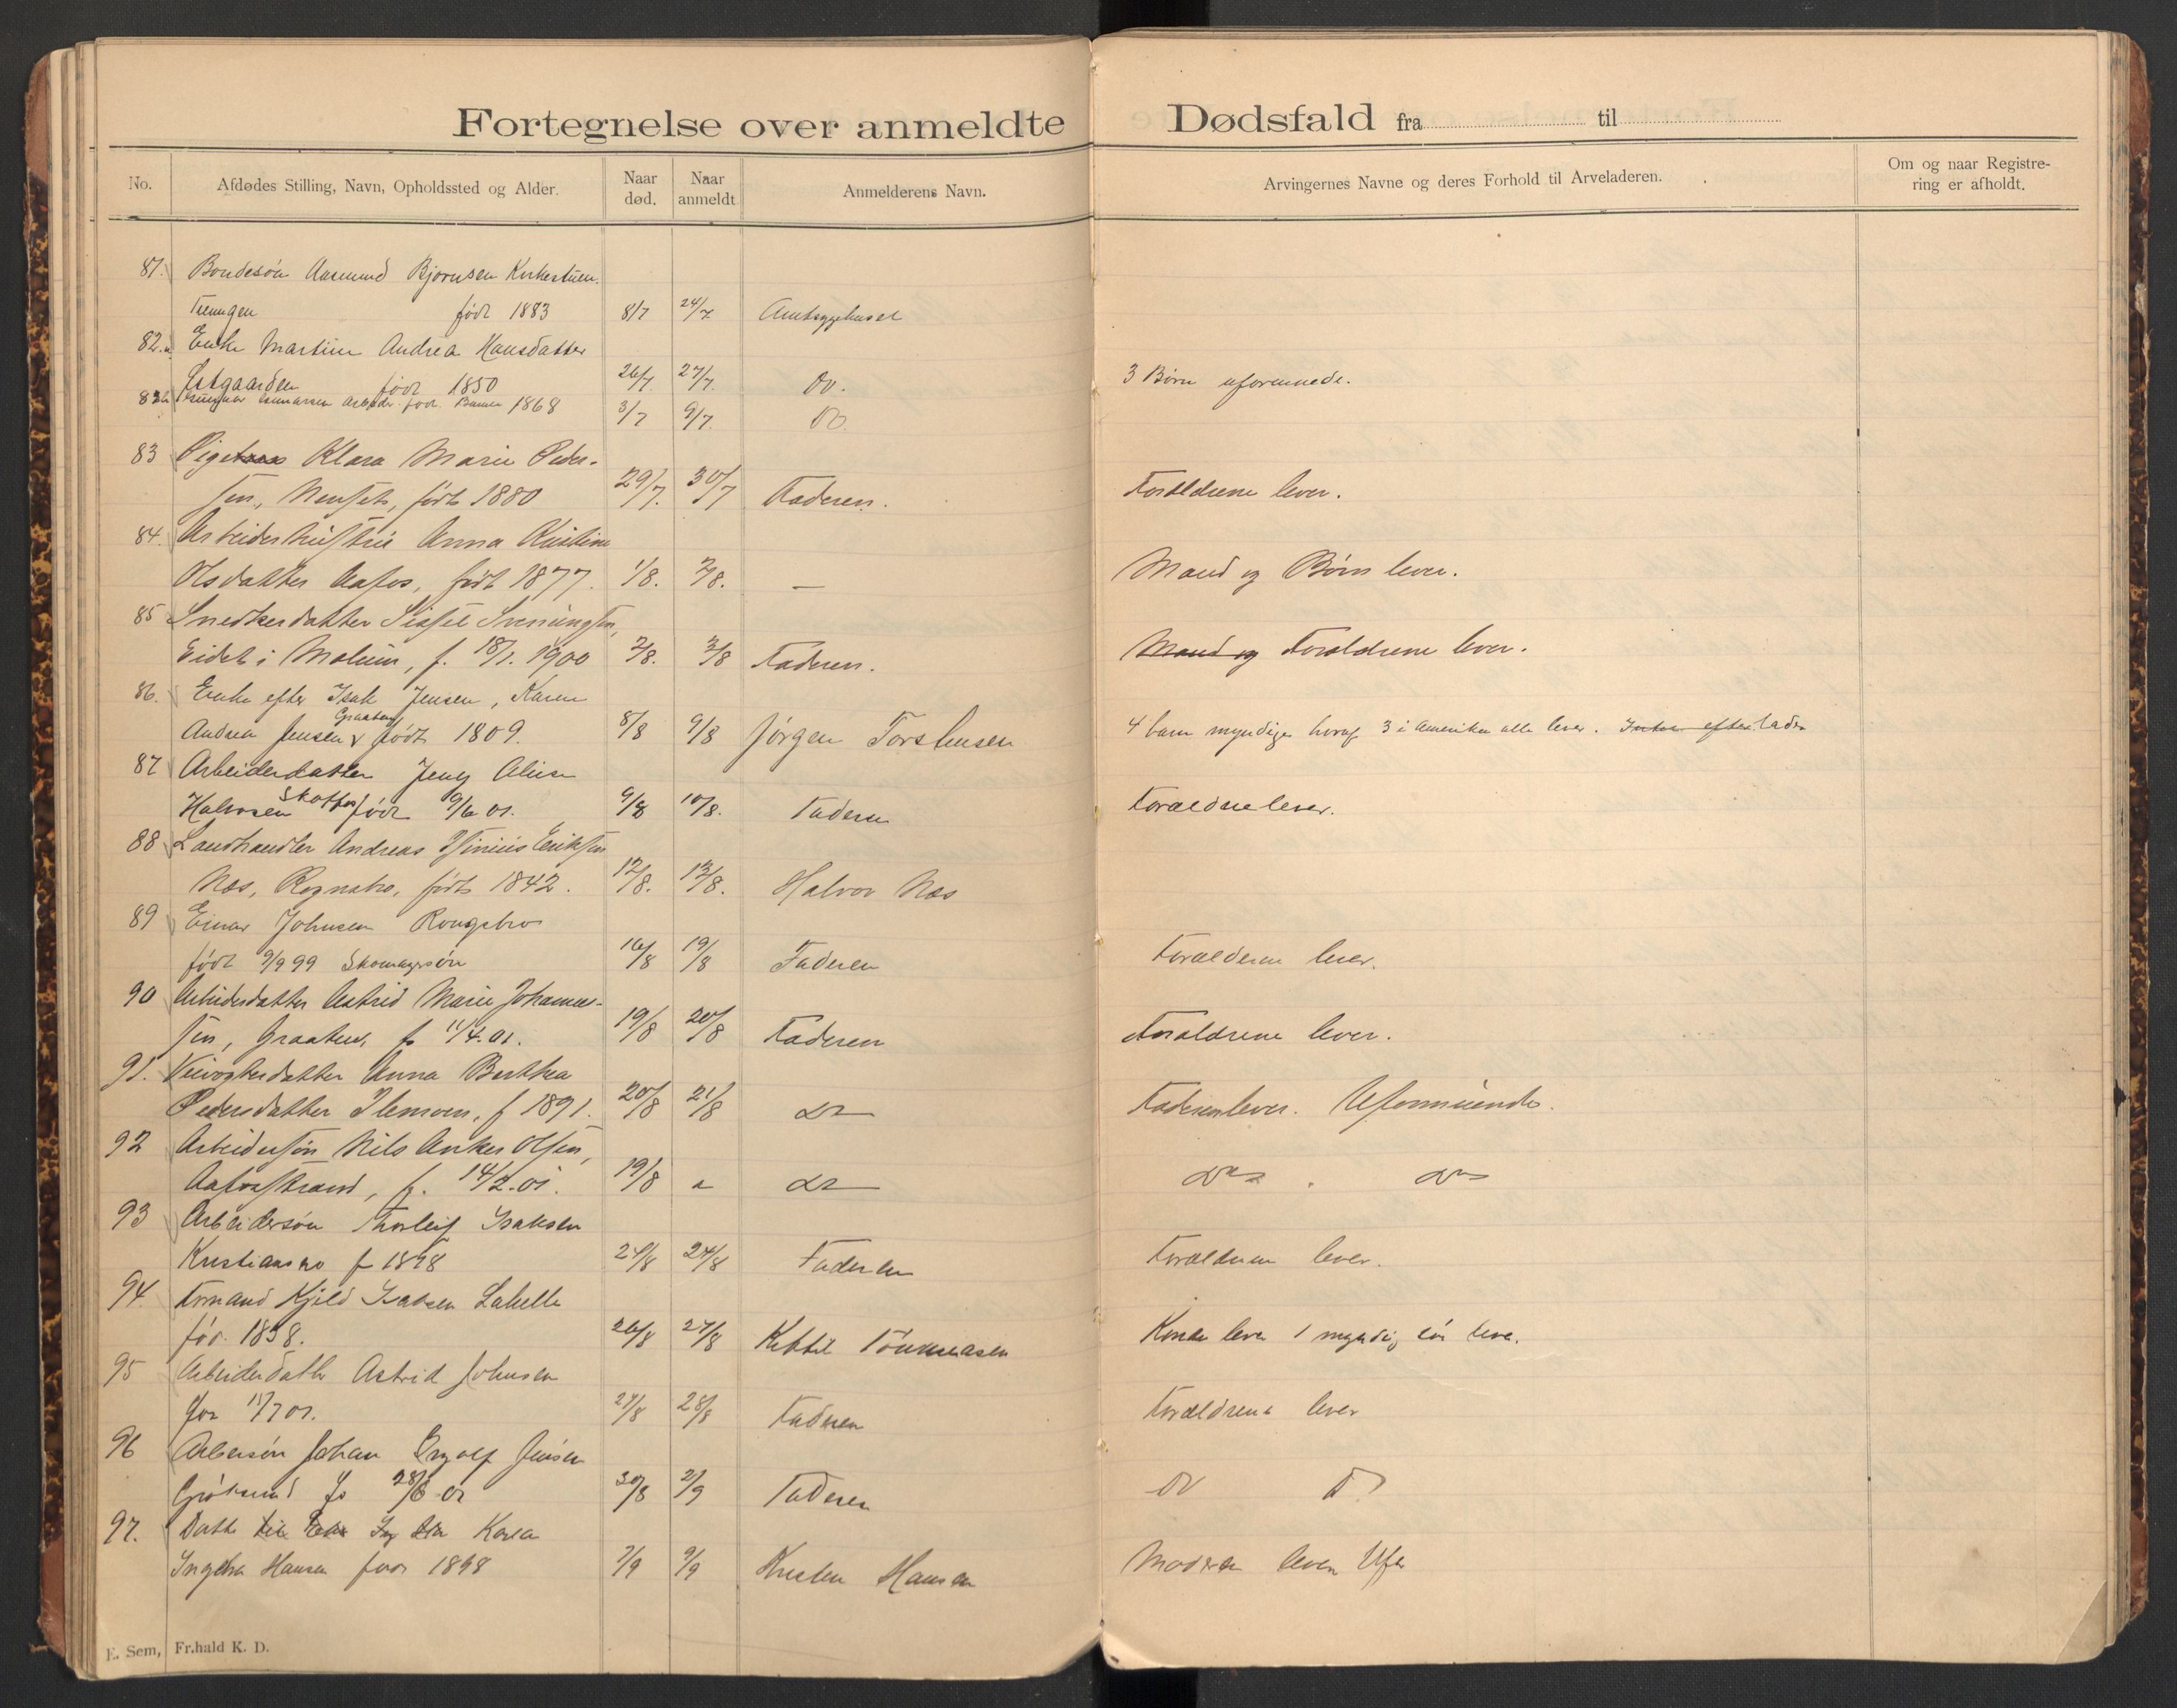 Fortegnelse over anmeldte Dødsfald fra til
No. Afdødes Stilling, Navn, Opholdssted og Alder. Naar død. Naar anmeldt. Anmelderens Navn. Arvingernes Navne og deres Forhold til Arveladeren. Om og naar Registrering er afholdt.
81. Bondesøn Aasmund Bjørnsen Kirkestuen
født 1883 8/7 24/7 Amtsygehuset
82.a Enke Martine Andrea Hansdatter
født 1850 26/7 27/7 Do. 3 Børn uformuede.
82b Gunnarsen Arbeider født 1868 3/7 9/7 Do.
83 Pige Klara Marie Peder-
sen, født 1880 29/7. 30/7 Faderen. Forældrene lever.
84. Arbeiderhustru Anna Kristine
Olsdatter Aafos, født 1877. 1/8. 2/8. — Mand og Børn lever.
85 Snedkerdatter Sissel Sveinungsen,
Eidet i Molum, f. 18/1. 1900 2/8. 3/8 Faderen. Mand og Forældrene lever.
86. Enke efter Isak Jensen, Karen
Andrea Jensen Graaten født 1809. 8/8 9/8 Jørgen Torstensen 4 barn myndige hvoraf 3 i Amerika alle lever. Intet efterlader
87 Arbeiderdatter Jeny Alise
Halvorsen født 9/6 01. 9/8 10/8. Faderen Forældre lever.
88 Landhandler Andreas Eriksen
Næs, Rognsbro, født 1842. 12/8. 13/8. Halvor Næs
89 Einar Johnsen Rongsbro
født 9/9 99 Skomagersøn 16/8 19/8 Faderen Forælderen lever.
90 Arbeiderdatter Astrid Marie Johannes-
sen, Graaten, f. 11/4.01. 19/8 20/8 Faderen Forældrene lever.
91. Veivogterdatter Anna Berthea
Pedersdatter f 1891. 20/8 21/8 do Faderen lever. Uformuende.
92 Arbeidersøn Nils Anker Olsen,
Aafosstrand, f. 14/2.01. 19/8 " do do . do
93 Arbeidersøn Thorleif Isaksen
f 1898 24/8 24/8 Faderen Forældrene lever.
94. Formand Kjeld Isaksen
fød. 1838. 26/8 27/8 Kittil Kone lever 1 myndig søn lever.
95 Arbeiderdatter Astrid Johnsen
1/7 01. 27/8 28/8 Faderen Forældrene lever
96 Arbeisøn Johan Ingolf Jensen
28/6 01 30/8 2/9 Faderen Do Do
97. Datter til Karen
Ingeborg Hansen født 1898 7/9 9/9 Hansen Moderen lever Ufor
E. Sem, Fr.hald K. D.